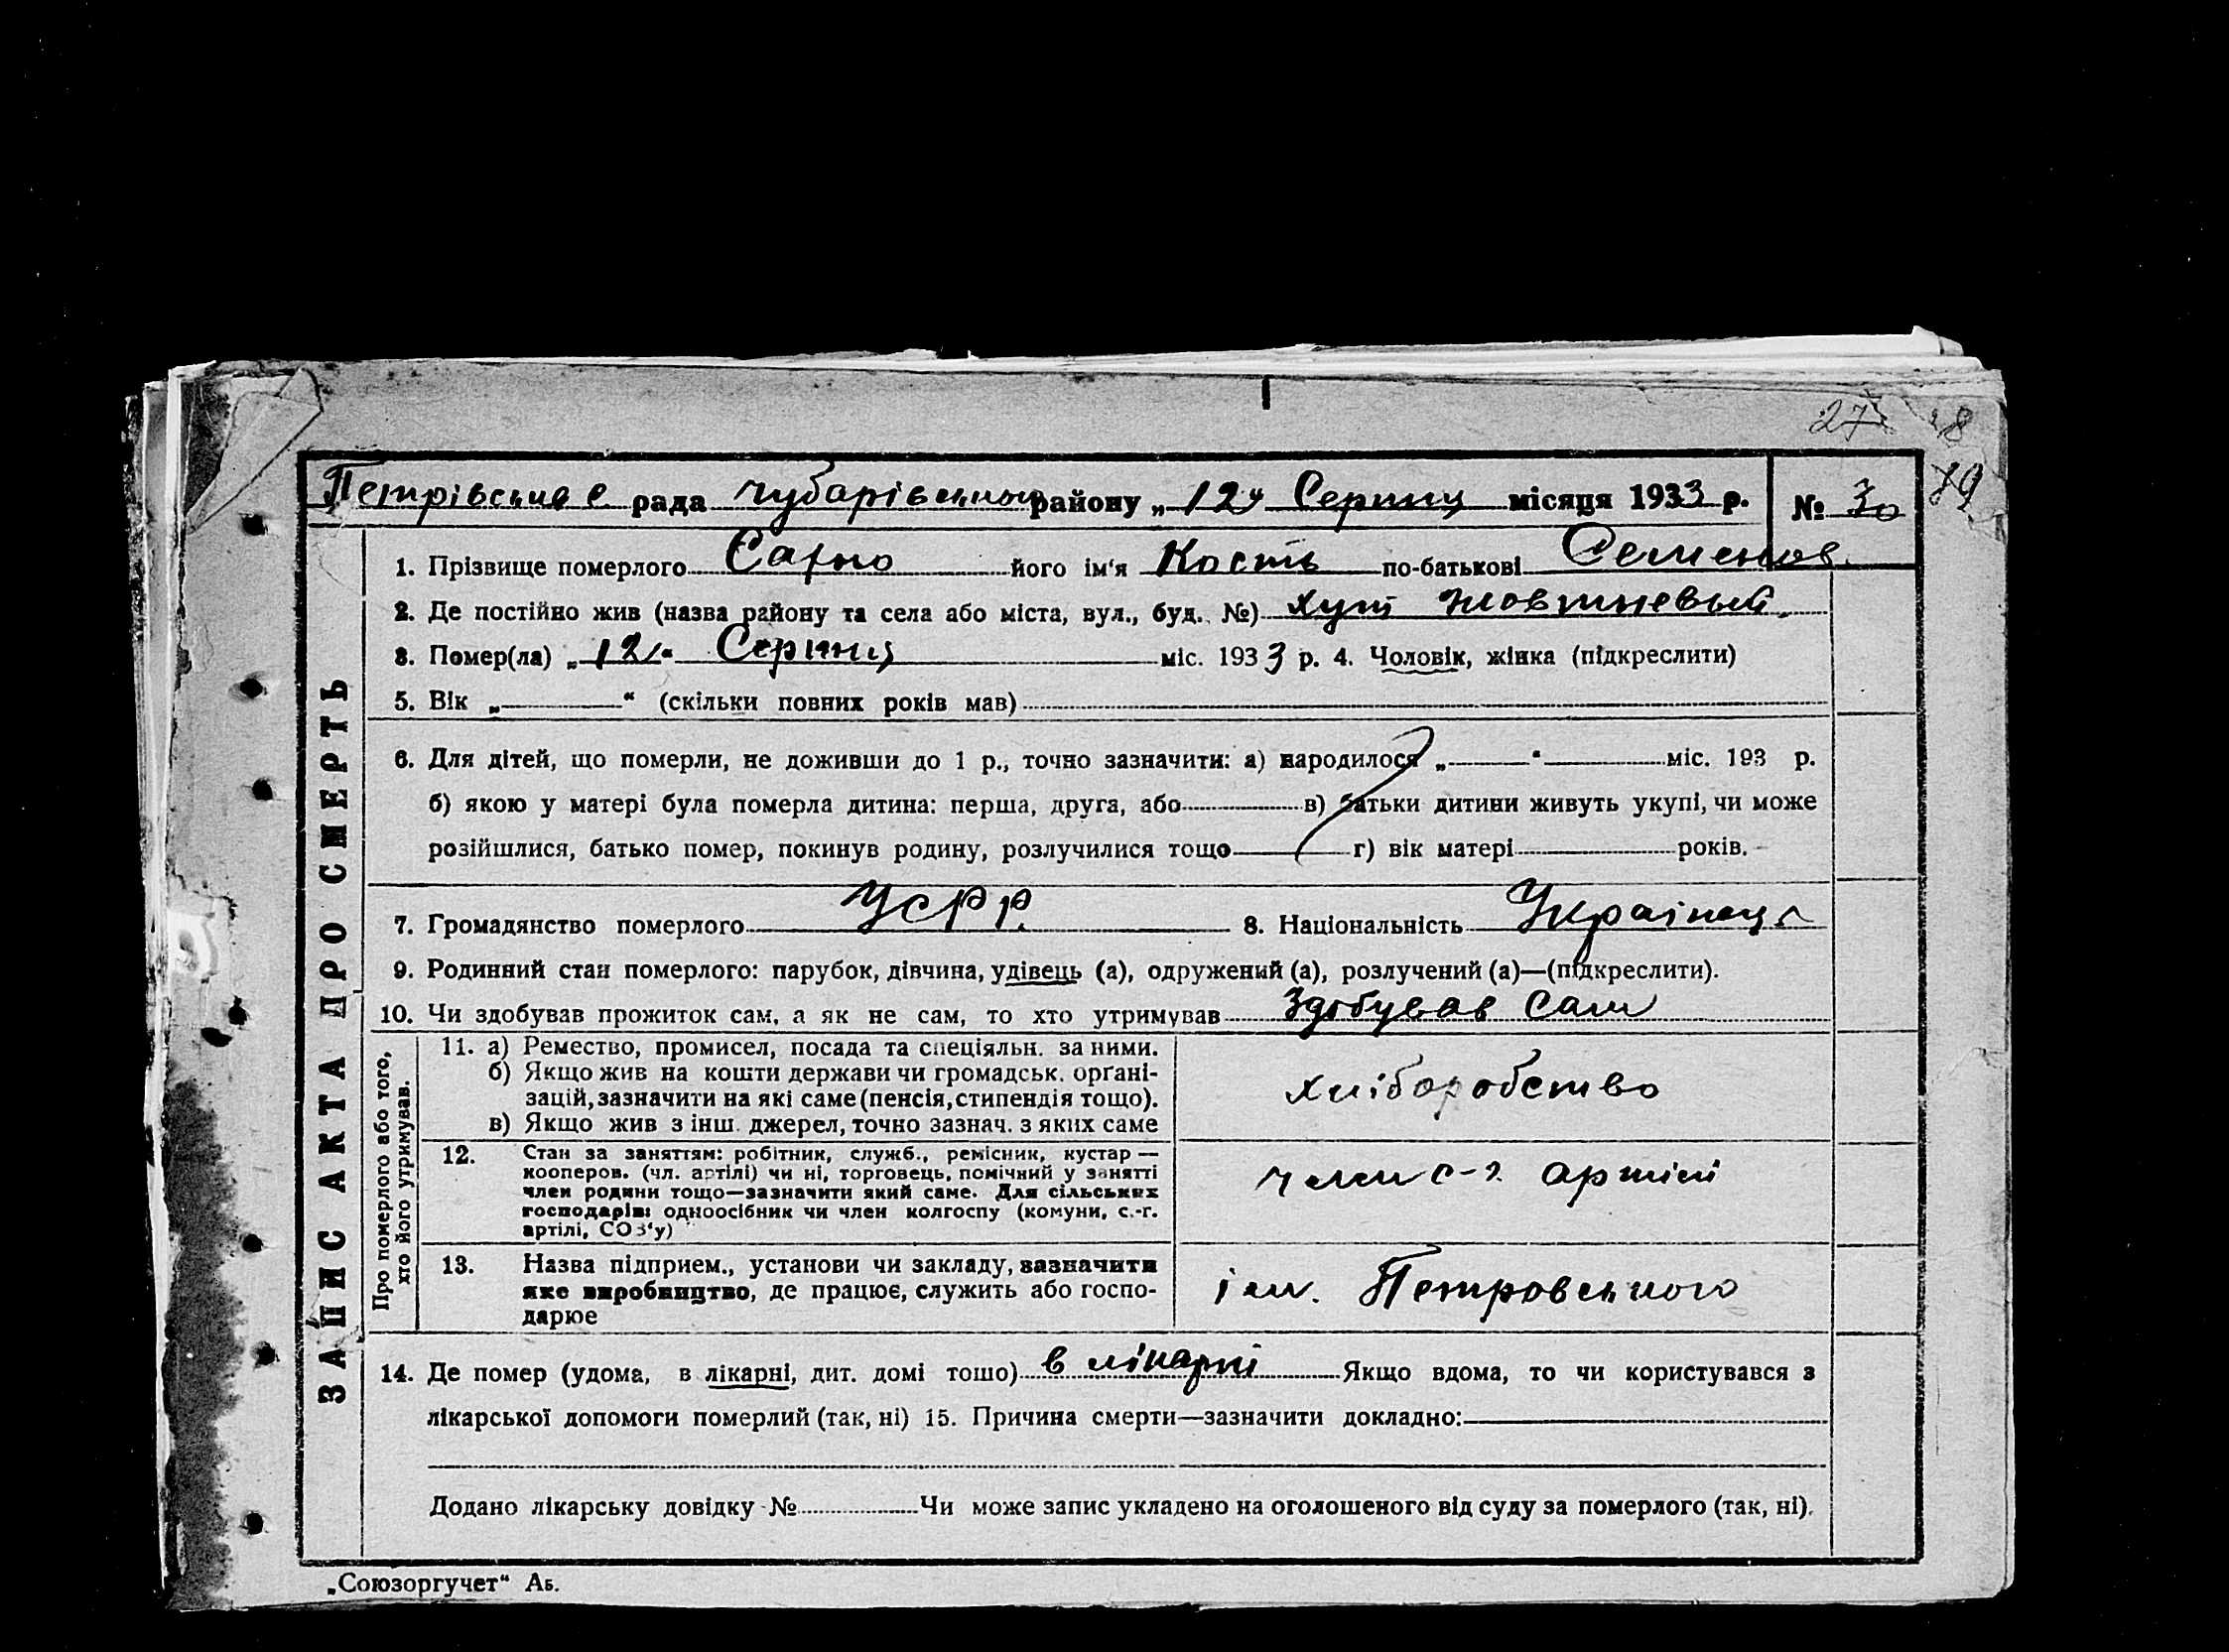 27 28
79
Петрівська с. рада Чубарівського району „12" Серпня місяця 1933 р. № 30
1. Прізвище померлого Сарно його ім'я Кость по-батькові Семенов.
2. Де постійно жив (назва району та села або міста, вул., буд. №) хут Жовтневый
3. Помер(ла) „12" Серпня міс. 1933 р. 4. Чоловік, жінка (підкреслити)
5. Вік „ " (скільки повних років мав)
6. Для дітей, що померли, не доживши до 1 р., точно зазначити: а) народилося „ " міс. 193 р.
б) якою у матері була померла дитина: перша, друга, або в) батьки дитини живуть укупі, чи може
розійшлися, батько помер, покинув родину, розлучилися тощо г) вік матері років.
7. Громадянство померлого УСРР. 8. Національність Українець
9. Родинний стан померлого: парубок, дівчина, удівець (а), одружений (а), розлучений (а)—(підкреслити).
10. Чи здобував прожиток сам, а як не сам, то хто утримував Здобував Сам
ЗАПИС АКТА ПРО СМЕРТЬ
Про померлого або того,
хто його утримував.
11. а) Ремество, промисел, посада та спеціяльн. за ними.
б) Якщо жив на кошти держави чи громадськ. орґані-
зацій, зазначити на які саме (пенсія, стипендія тощо).
в) Якщо жив з інш. джерел, точно зазнач. з яких саме
хліборобство
12. Стан за заняттям: робітник, служб., ремісник, кустар —
кооперов. (чл. артілі) чи ні, торговець, помічний у занятті
член родини тощо—зазначити який саме. Для сільських
господарів: одноосібник чи член колгоспу (комуни, с.-г.
артілі, СОЗ'у)
член с-г. артілі
13. Назва підприєм., установи чи закладу, зазначити
яке виробництво, де працює, служить або госпо-
дарює
ім. Петровського
14. Де помер (удома, в лікарні, дит. домі тошо) в лікарні Якщо вдома, то чи користувався з
лікарської допомоги померлий (так, ні) 15. Причина смерти—зазначити докладно:
Додано лікарську довідку № Чи може запис укладено на оголошеного від суду за померлого (так, ні).
„Союзоргучет" Аб.